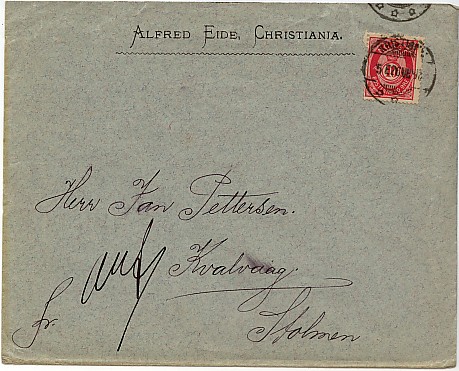 ALFRED EIDE, CHRISTIANIA.
Herr Jan Pettersen.
Kvalvaag.
Fr.
Stolmen